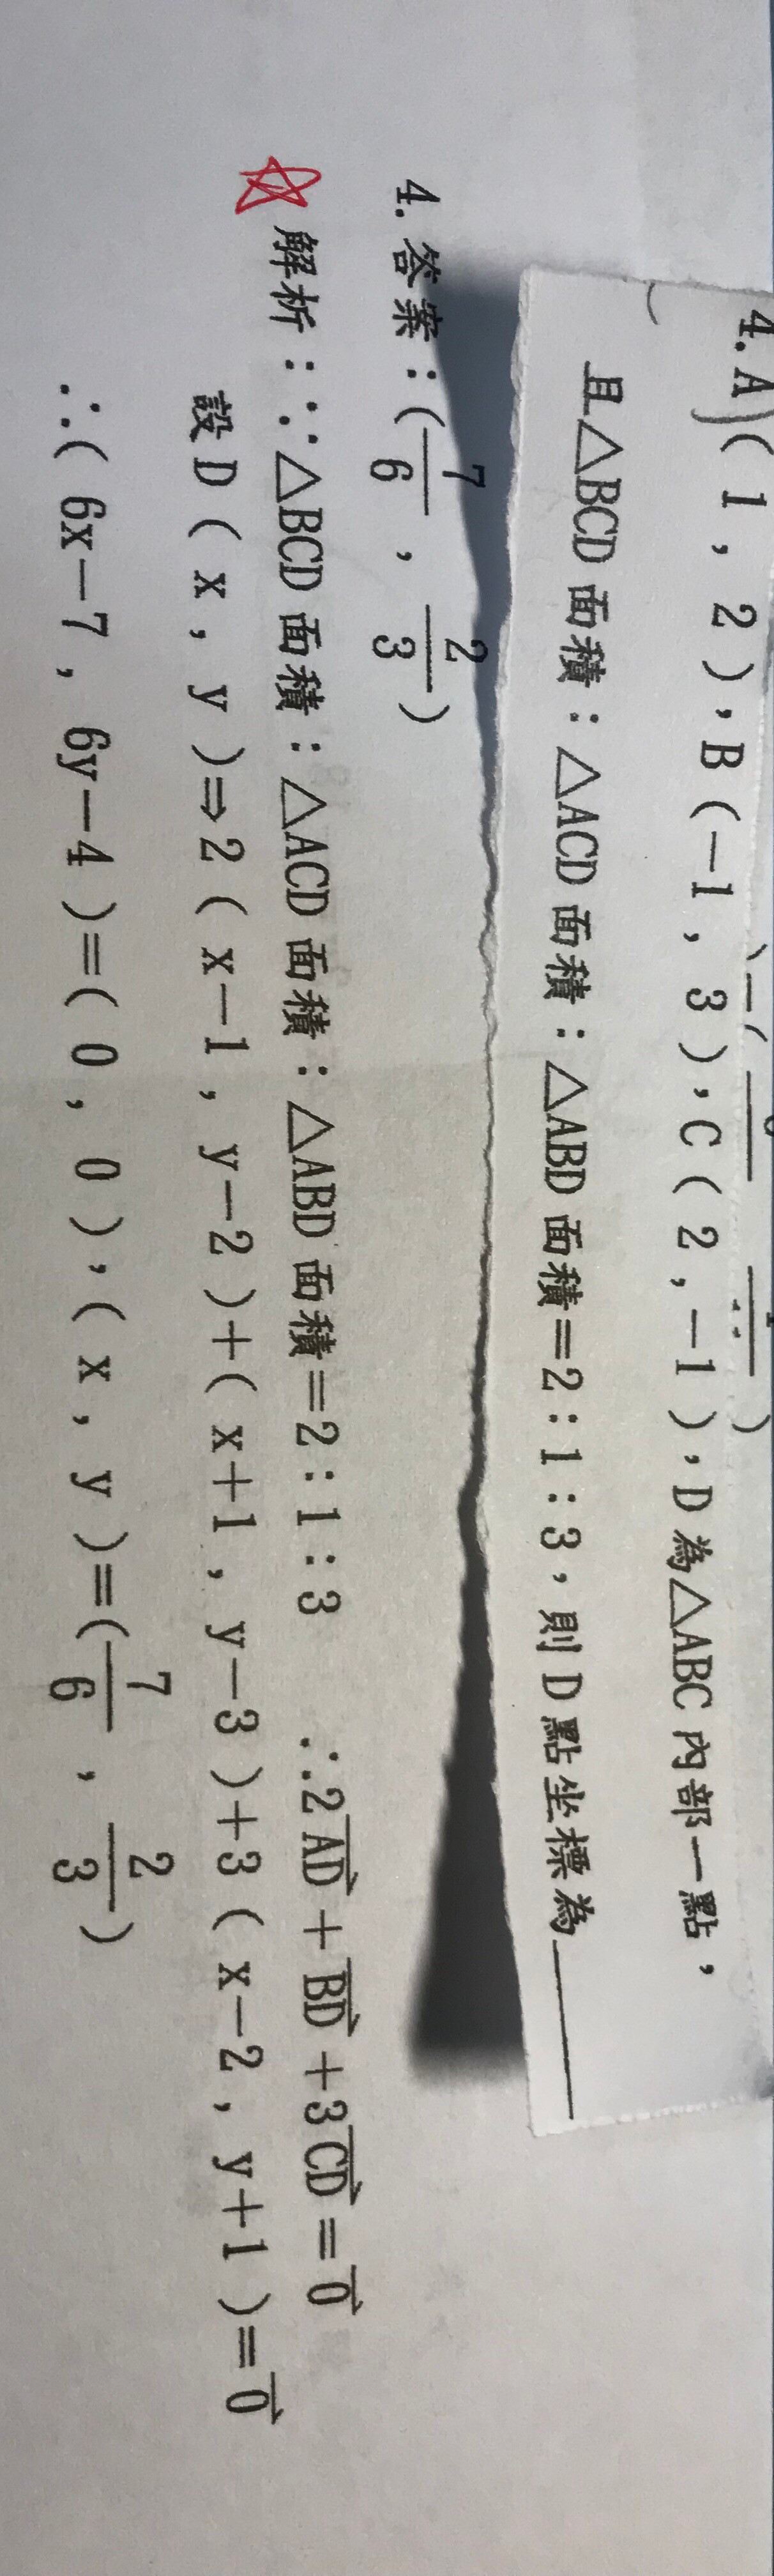 4. A(1, 2), B(-1, 3), C(2, -1), D為△ABC內部一點,
且△BCD面積:△ACD面積:△ABD面積=2:1:3, 則D點坐標為______
4. 答案:(7/6, 2/3)
解析:∵△BCD面積:△ACD面積:△ABD面積=2:1:3 ∴2AD⃗+BD⃗+3CD⃗=0⃗
設D(x, y)⇒2(x-1, y-2)+(x+1, y-3)+3(x-2, y+1)=0⃗
∴(6x-7, 6y-4)=(0, 0), (x, y)=(7/6, 2/3)